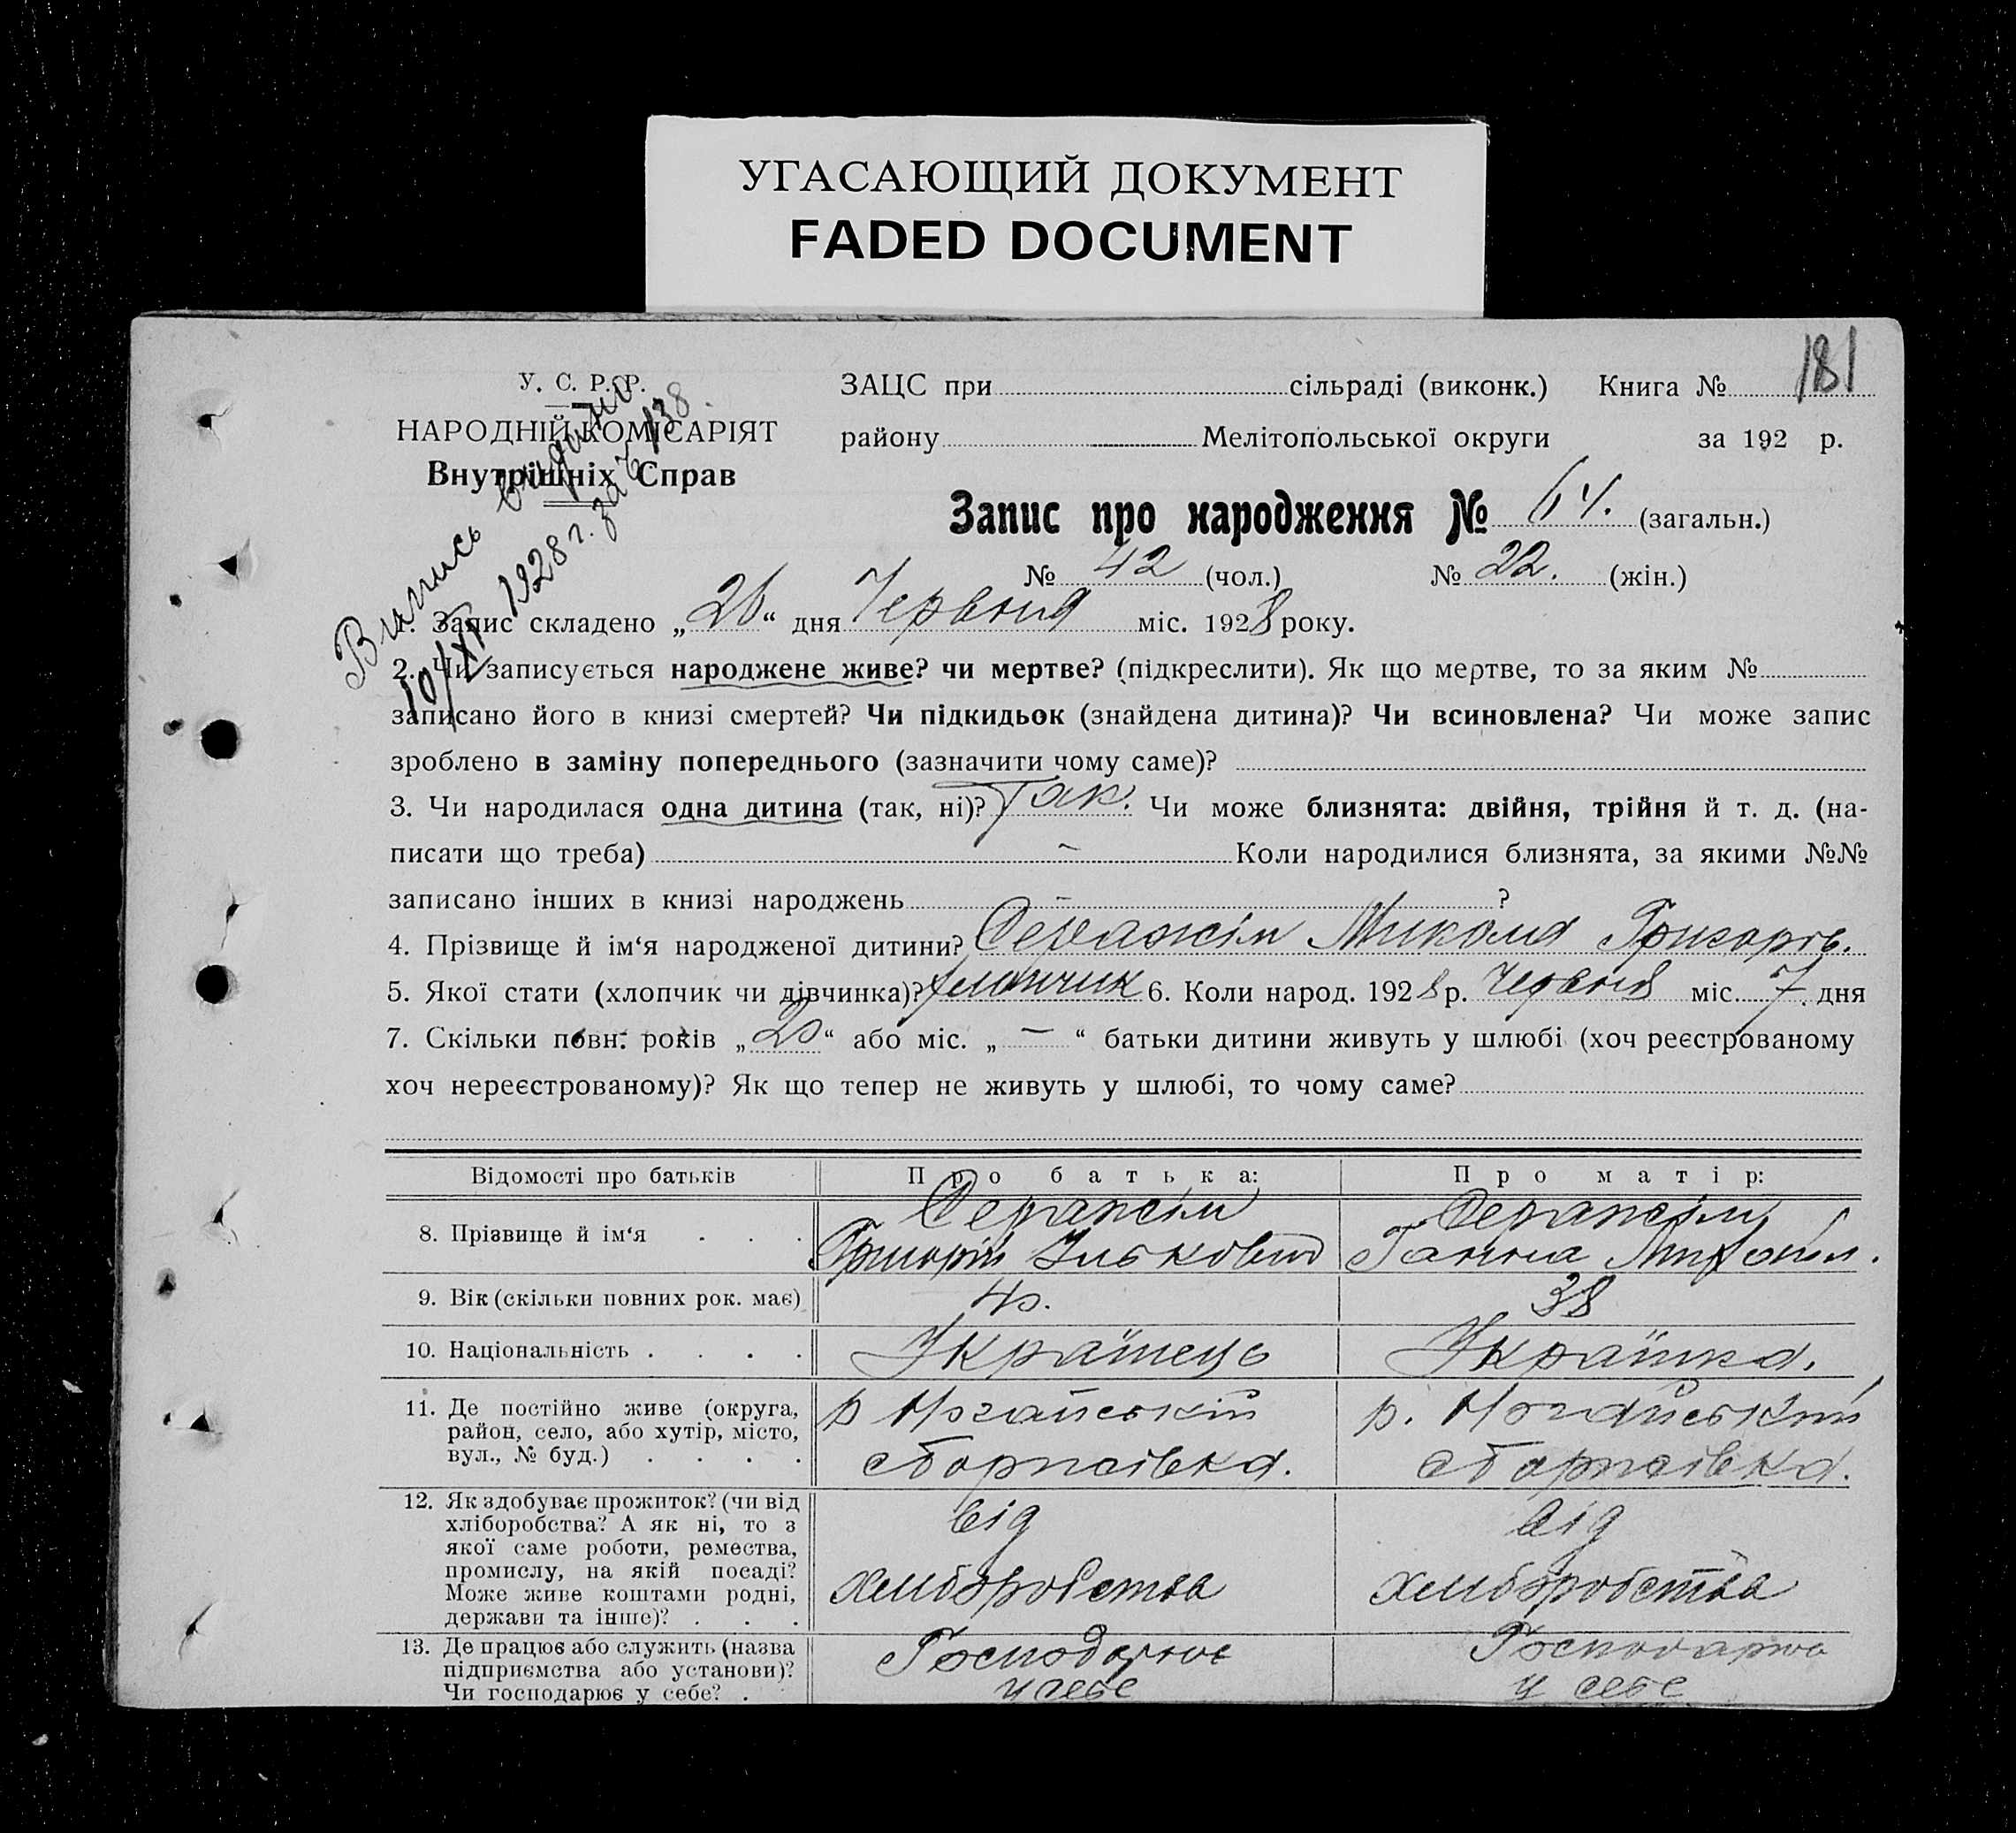 УГАСАЮЩИЙ ДОКУМЕНТ
FADED DOCUMENT
181
У. С. Р. Р.
НАРОДНІЙ КОМІСАРІЯТ
Внутрішніх Справ
Випись видано
10/XI 1928 г. за № 138.
ЗАЦС при сільраді (виконк.) Книга №
району Мелітопольської округи за 192 р.
Запис про народження № 64. (загальн.)
№ 42 (чол.) № 22. (жін.)
1. Запис складено „26“ дня Червня міс. 1928 року.
2. Чи записується народжене живе? чи мертве? (підкреслити). Як що мертве, то за яким №
записано його в книзі смертей? Чи підкидьок (знайдена дитина)? Чи всиновлена? Чи може запис
зроблено в заміну попереднього (зазначити чому саме)?
3. Чи народилася одна дитина (так, ні)? Так. Чи може близнята: двійня, трійня й т. д. (на-
писати що треба) – Коли народилися близнята, за якими №№
записано інших в книзі народжень – ?
4. Прізвище й ім‘я народженої дитини? Микола Григоров.
5. Якої стати (хлопчик чи дівчинка)? хлопчик 6. Коли народ. 1928 р. Червня міс. 7. дня
7. Скільки повн. років „20“ або міс. „—“ батьки дитини живуть у шлюбі (хоч реєстрованому
хоч нереєстрованому)? Як що тепер не живуть у шлюбі, то чому саме?
Відомості про батьків Про батька: Про матір:
8. Прізвище й ім‘я . . . Григорій Ількович Ганна
9. Вік (скільки повних рок. має) 40. 38
10. Національність . . . . Українець Українка.
11. Де постійно живе (округа, район, село, або хутір, місто, вул., № буд.) . . . . р Ногайський р. Ногайський
с Борисівка. с Борисівка.
12. Як здобуває прожиток? (чи від хліборобства? А як ні, то з якої саме роботи, ремества, промислу, на якій посаді? Може живе коштами родні, держави та інше)? . . . від хліборобства від хліборобства
13. Де працює або служить (назва підприємства або установи)? Чи господарює у себе? . Господарює у себе Господарює у себе